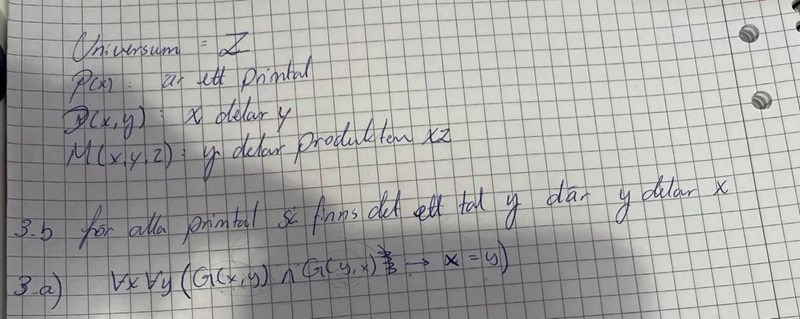 Universum = Z
P(x) : är ett primtal
D(x,y) : x delar y
M(x,y,z) : y delar produkten xz
3.b för alla primtal så finns det ett tal y där y delar x
3.a) ∀x∀y(G(x,y) ∧ G(y,x) → x = y)